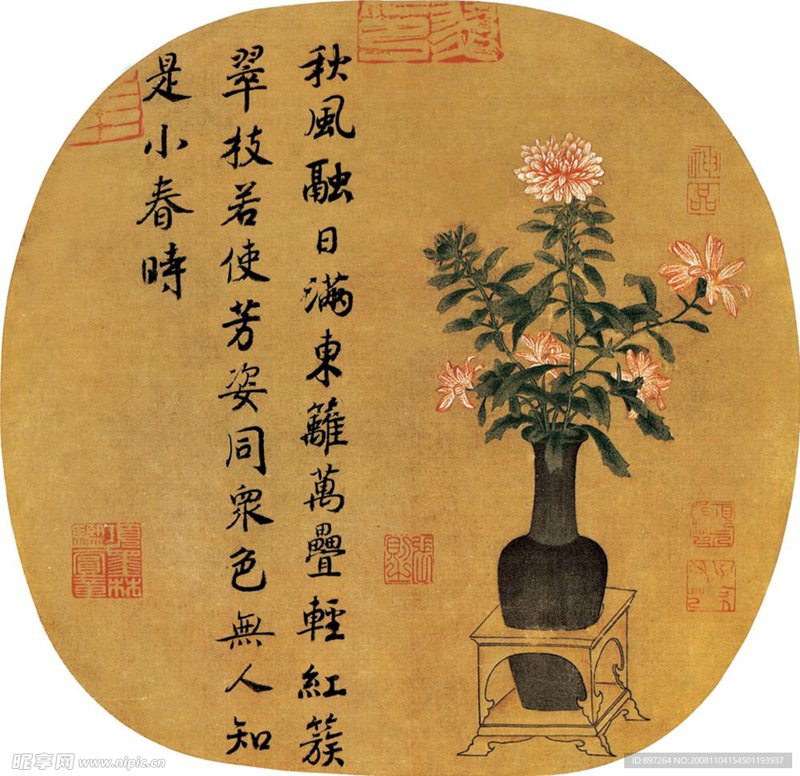 秋風融日滿東籬萬疊輕紅簇
翠枝若使芳姿同衆色無人知
是小春時
神品
昵享网 www.nipic.cn
ID:897264 NO:20081104154501193937